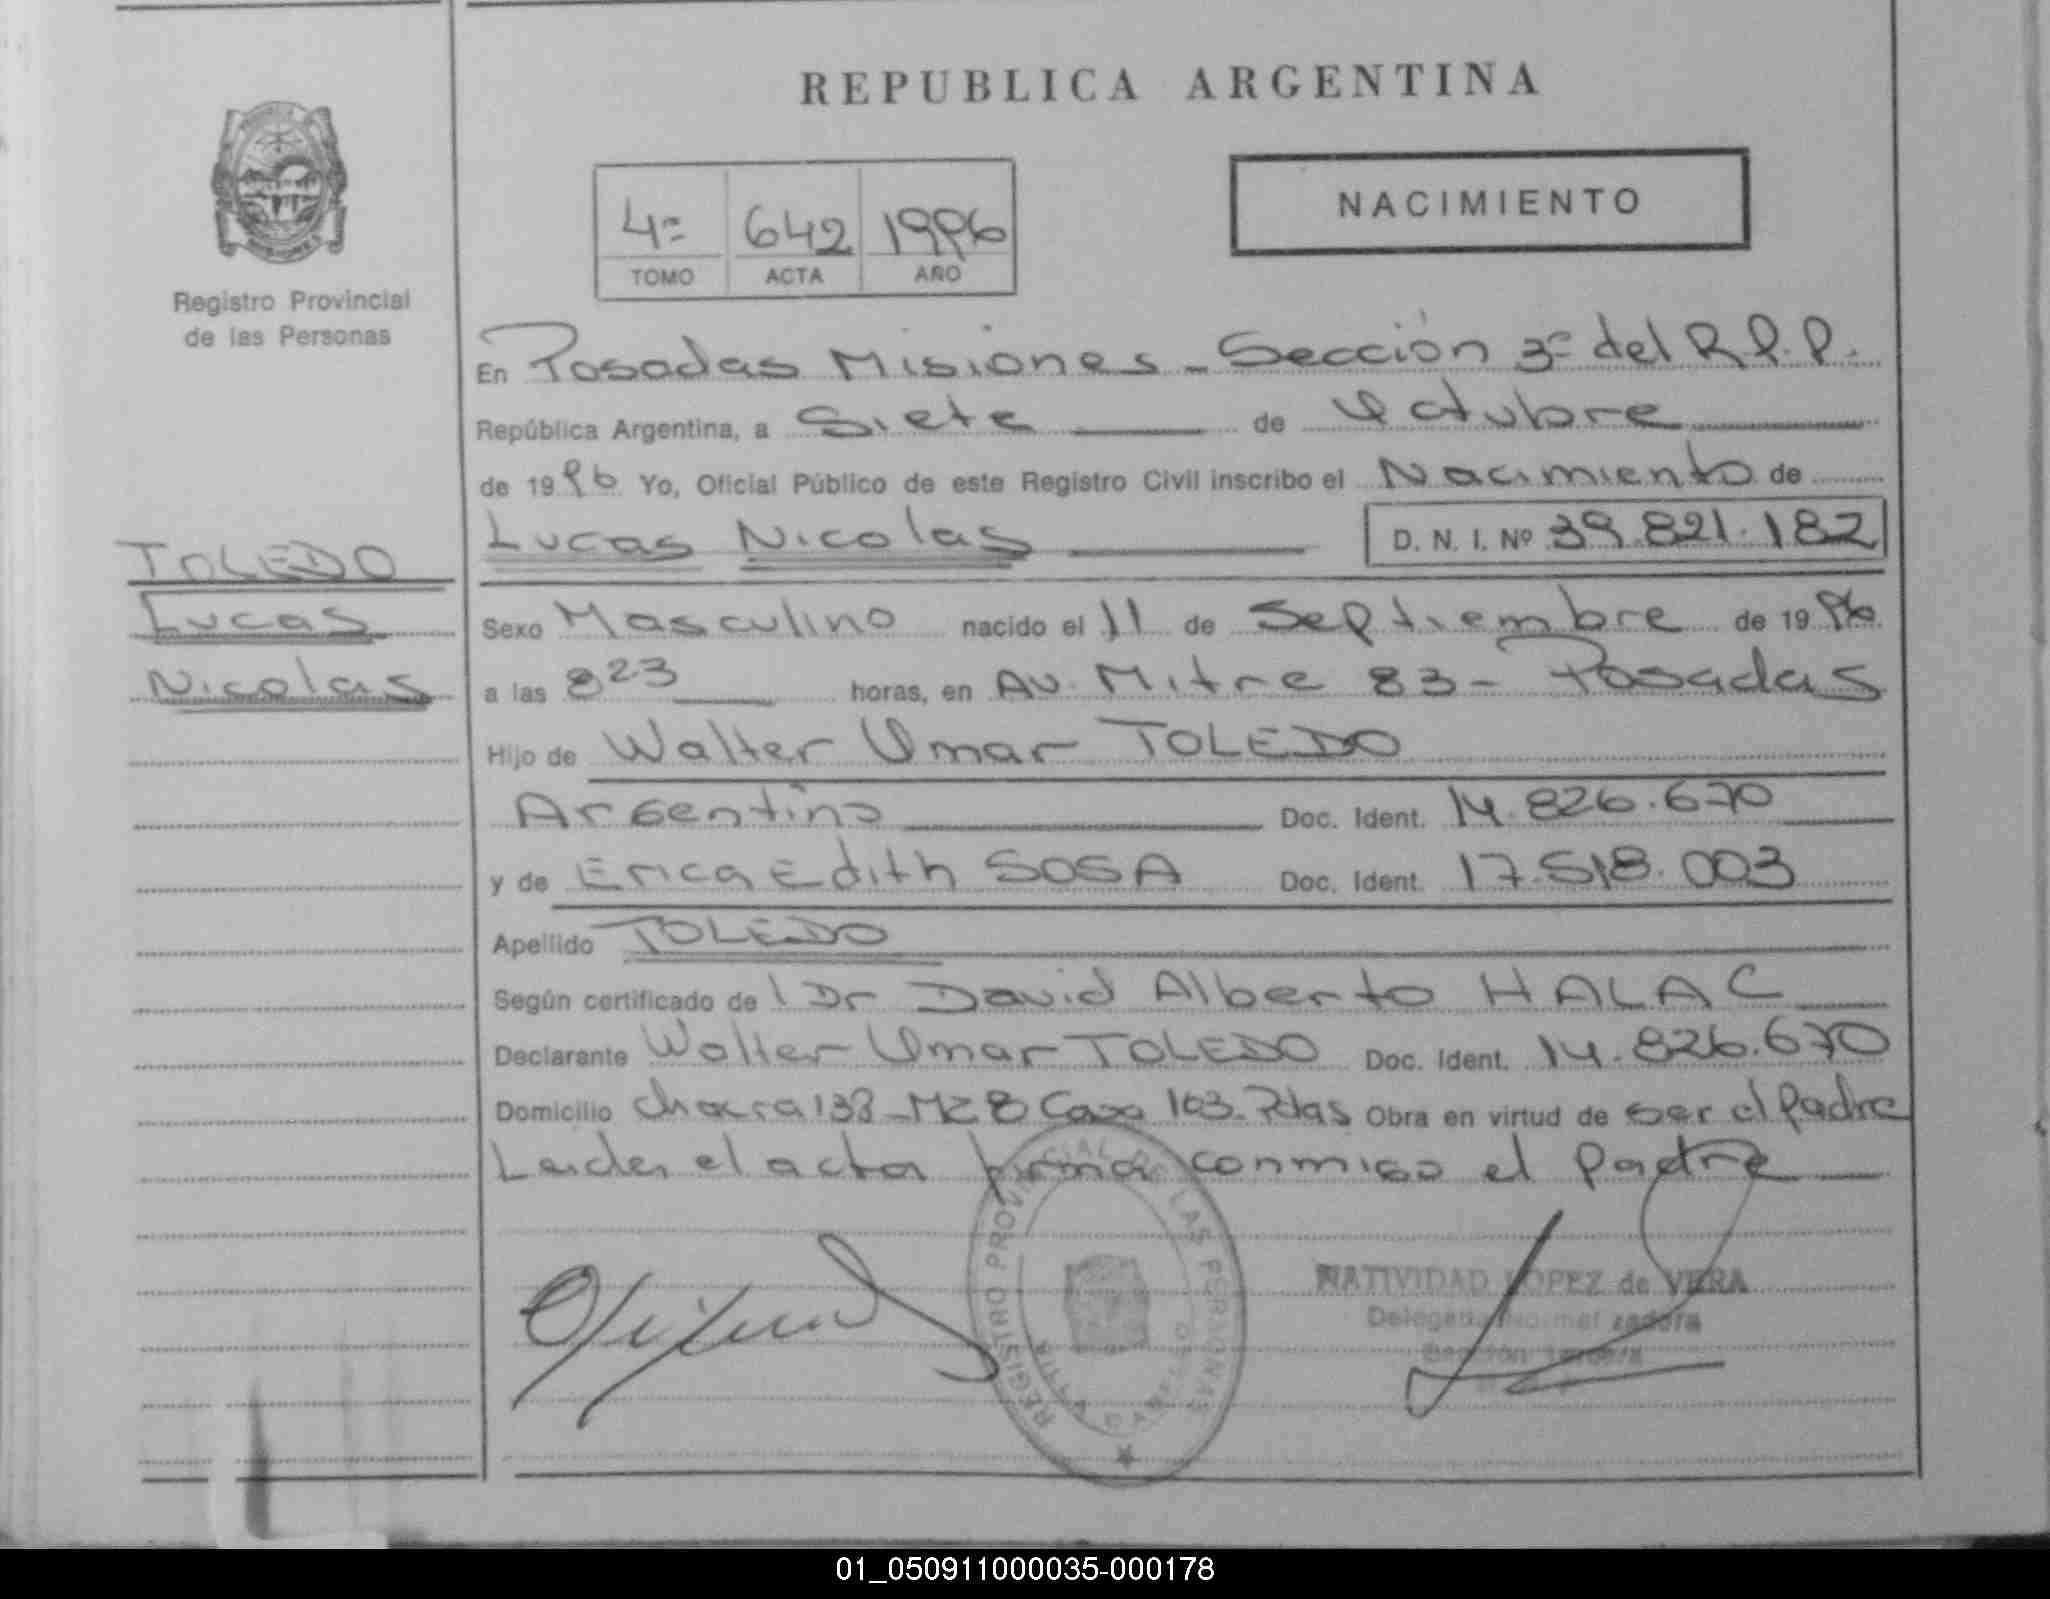 REPUBLICA ARGENTINA
NACIMIENTO
4º 642 1996
TOMO ACTA AÑO
Registro Provincial
de las Personas
En Posadas Misiones - Sección 3º del R.P.P.
República Argentina, a Siete de Octubre
de 1996 Yo, Oficial Público de este Registro Civil inscribo el Nacimiento de
Lucas Nicolas D. N. I. Nº 39.821.182
TOLEDO
Lucas
Nicolas
Sexo Masculino nacido el 11 de Septiembre de 1996
a las 8 23 horas, en Av. Mitre 83 - Posadas
Hijo de Walter Omar TOLEDO
Argentino Doc. Ident. 14.826.670
y de Erica Edith SOSA Doc. Ident. 17.518.003
Apellido TOLEDO
Según certificado de l Dr David Alberto HALAC
Declarante Walter Omar TOLEDO Doc. Ident. 14.826.670
Domicilio Chacra 138 - MZ 8 Casa 163 - Pdas Obra en virtud de ser el Padre
Leida el acta firma conmigo el Padre
REGISTRO PROVINCIAL DE LAS PERSONAS
NATIVIDAD LOPEZ de VERA
Delegada Normalizadora
Sección Tercera
01_050911000035-000178